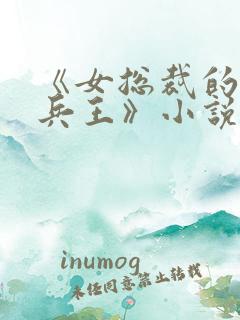 《女总裁的
兵王》小说
inumog
未经同意禁止转载